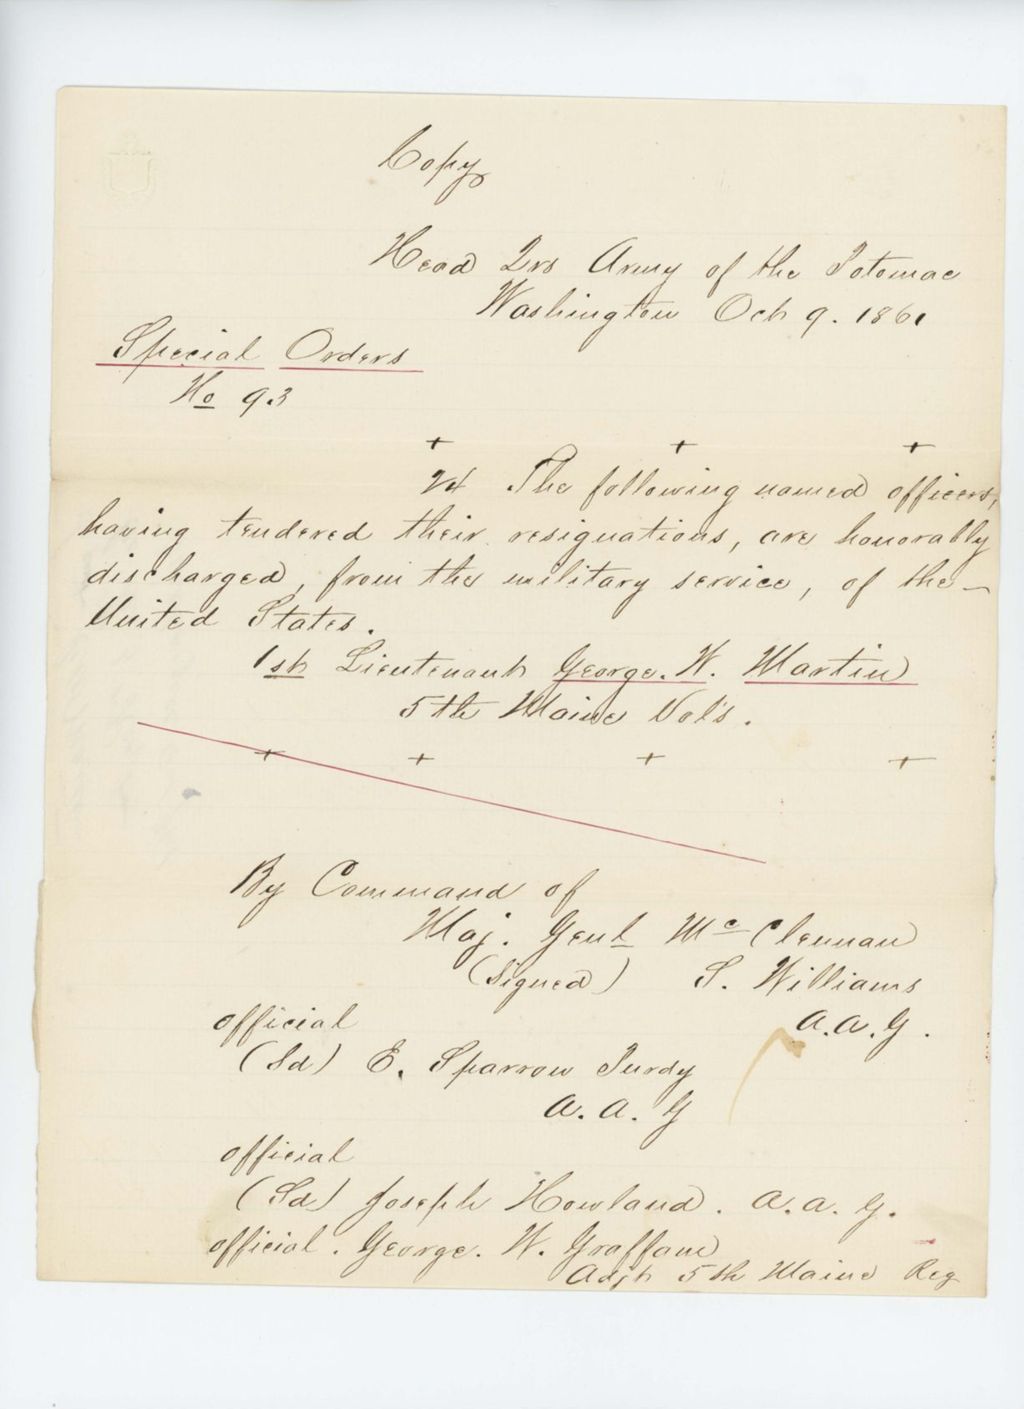 Copy
Head Qrs Army of the Potomac
Washington Oct 9. 1861
Special Orders
No 93
+ + +
24 The following named officers,
having tendered their resignations, are honorably
discharged, from the military service, of the
United States.
1st Lieutenant George. W. Martin
5th Maine Vol's.
+ + + +
By Command of
Maj. Genl McClennan
(Signed) S. Williams
A.A.G.
official
(Sd) E. Sparrow Purdy
A. A. G
official
(Sd) Joseph Howland. A. A. G.
official. George. W. Graffam
Adjt 5th Maine Reg